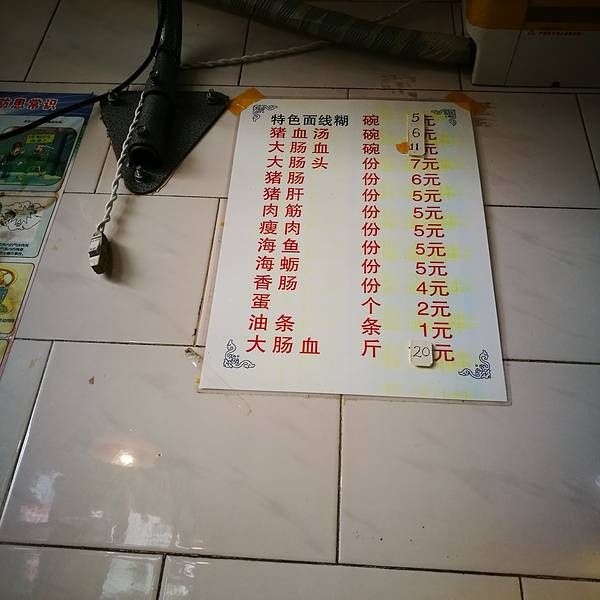 防患常识
特色面线糊 碗 5元
猪血汤 碗 6元
大肠血 碗 11元
大肠头 份 7元
猪肠 份 6元
猪肝 份 5元
肉筋 份 5元
瘦肉 份 5元
海鱼 份 5元
海蛎 份 5元
香肠 份 4元
蛋 个 2元
油条 条 1元
大肠血 斤 20元